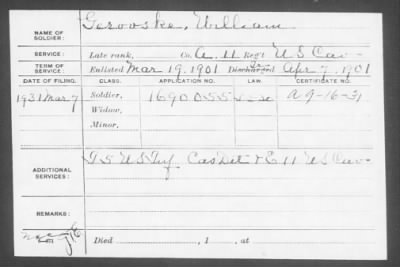 NAME OF SOLDIER: Gerovske, William
SERVICE: Late rank, Co. A. 11 Reg't U S Cav-
TERM OF SERVICE: Enlisted Mar 19, 1901 Discharged Apr 7, 1901
DATE OF FILING. CLASS. APPLICATION NO. LAW. CERTIFICATE NO.
1931 Mar 7 Soldier, 1690055 A 9-16-31
Widow,
Minor,
ADDITIONAL SERVICES: U S Inf. Cas Det & E 11 U S Cav-
REMARKS:
Died , 1 , at